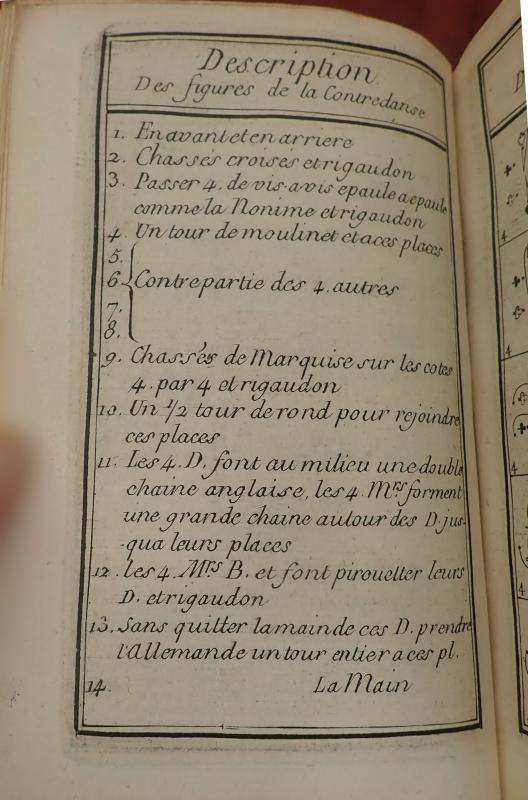 Description
Des figures de la Contredanse
1. En avant et en arriere
2. Chassés croisés et rigaudon
3. Passer 4. de vis-a-vis epaule a epaule
comme la Nonime et rigaudon
4. Un tour de moulinet et a ces places
5.
6. Contrepartie des 4. autres
7.
8.
9. Chassés de Marquise sur les cotés
4. par 4 et rigaudon
10. Un 1/2 tour de rond pour rejoindre
ces places
11. Les 4. D. font au milieu une double
chaine anglaise, les 4. Mrs forment
une grande chaine autour des D. jus-
-qua leurs places
12. les 4. Mrs B. et font pirouetter leurs
D. et rigaudon
13. Sans quitter la main de ces D. prendre
l'Allemande un tour entier a ces pl.
14. La Main